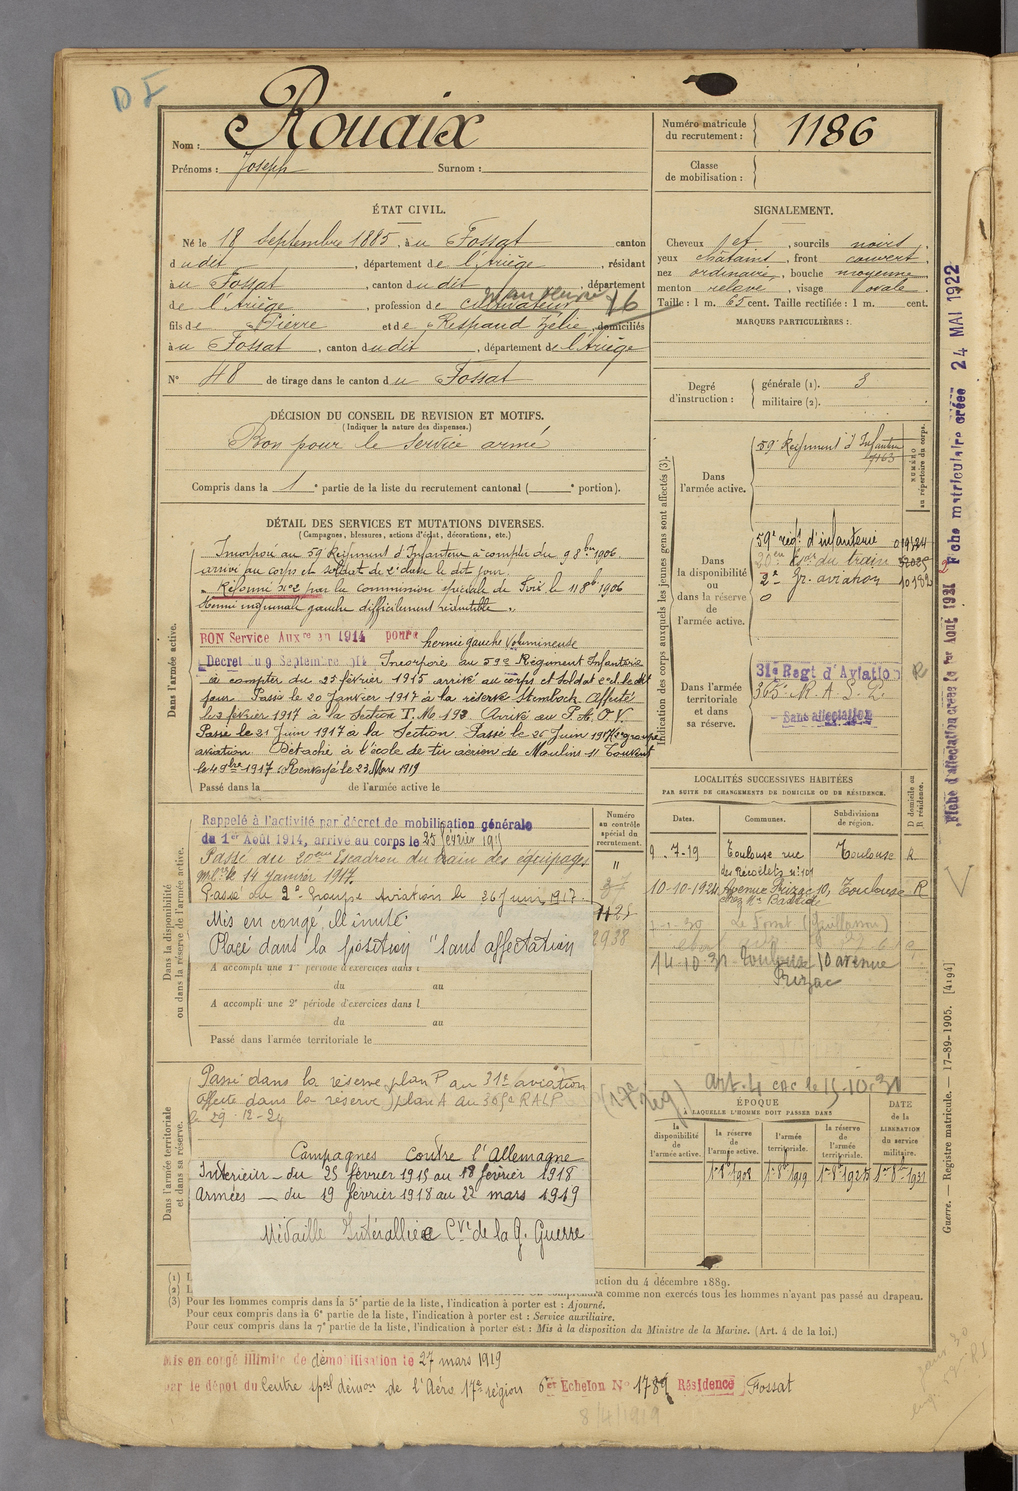 D I
Nom : Rouaix
Prénoms : Joseph Surnom :
Numéro matricule du recrutement : 1186
Classe de mobilisation :
ÉTAT CIVIL.
Né le 18 Septembre 1885, à u Fossat canton
d udit, département de l'Ariège, résidant
à u Fossat, canton dudit, département
de l'Ariège, profession de cultivateur
fils de Pierre et de Respaud Zélie, domiciliés
à u Fossat, canton dudit, département de l'Ariège
N° 48 de tirage dans le canton du Fossat
SIGNALEMENT.
Cheveux et, sourcils noirs,
yeux châtains, front couvert,
nez ordinaire, bouche moyenne,
menton relevé, visage ovale.
Taille : 1 m. 65 cent. Taille rectifiée : 1 m. cent.
MARQUES PARTICULIÈRES :
Degré d'instruction : générale (1). 3
militaire (2).
DÉCISION DU CONSEIL DE REVISION ET MOTIFS.
(Indiquer la nature des dispenses.)
Bon pour le service armé
Compris dans la 1e partie de la liste du recrutement cantonal ( e portion).
DÉTAIL DES SERVICES ET MUTATIONS DIVERSES.
(Campagnes, blessures, actions d'éclat, décorations, etc.)
Dans l'armée active.
Incorporé au 59e Régiment d'Infanterie à compter du 9 8bre 1906.
arrivé au corps et soldat de 2e classe le dit jour.
Réformé n°2 par la commission spéciale de Foix le 11 8bre 1906
Hernie inguinale gauche difficilement réductible.
BON Service Auxre en 1914 pour hernie gauche volumineuse
Décret du 9 Septembre 1914 Incorporé au 59e Régiment Infanterie
à compter du 25 février 1915 arrivé au corps et soldat 2e cl. le dit
jour. Passé le 20 Janvier 1917 à la réserve Affecté
le 2 février 1917 à la Section T. M. 193. Arrivé au P. A. O V.
Passé le 21 Juin 1917 à la Section. Passé le 26 Juin 1917 2e groupe
aviation. Détaché à l'école de tir aérien de Moulins s/ Touvent
le 4 9bre 1917. Renvoyé le 23 Mars 1919
Passé dans la de l'armée active le
Indication des corps auxquels les jeunes gens sont affectés (3).
NUMÉRO au répertoire du corps.
Dans l'armée active.
59e Régiment d'Infanterie
Dans la disponibilité ou dans la réserve de l'armée active.
59e régt d'infanterie 019124
20eme Esc. du train
2e Gr. aviation
Dans l'armée territoriale et dans sa réserve.
31e Regt d'Aviation R
365e R. A. L. P.
Sans affectation
LOCALITÉS SUCCESSIVES HABITÉES
PAR SUITE DE CHANGEMENTS DE DOMICILE OU DE RÉSIDENCE.
Dates. Communes. Subdivisions de région. D domicile ou R résidence.
9-7-19 Toulouse rue des Récollets n° 101 Toulouse R
10-10-1924 Avenue Frizac 10, chez Me Bastide Toulouse R
14-10-31 Toulouse 10 avenue
Frizac
Dans la disponibilité ou dans la réserve de l'armée active.
Numéro au contrôle spécial du recrutement.
Rappelé à l'activité par décret de mobilisation générale
du 1er Août 1914, arrivé au corps le 25 février 1915
Passé au 20eme Escadron du train des équipages
mlre le 14 janvier 1917.
Passé au 2e Groupe Aviation le 26 Juin 1917.
Mis en congé illimité.
Placé dans la position "sans affectation
A accompli une 1re période d'exercices dans l
du au
A accompli une 2e période d'exercices dans l
du au
Passé dans l'armée territoriale le
Dans l'armée territoriale et dans sa réserve.
Passé dans la réserve plan P au 31e aviation
Affecté dans la réserve plan A au 365e RALP
le 29-12-24
(17e rég)
Campagnes contre l'Allemagne
Intérieur - du 25 février 1915 au 18 février 1918
Armées - du 19 février 1918 au 22 mars 1919
Médaille Interalliée Cve de la G. Guerre
art. 4 CAC le 15-10-30
ÉPOQUE
À LAQUELLE L'HOMME DOIT PASSER DANS
DATE DE LA LIBÉRATION du service militaire.
la disponibilité de l'armée active. la réserve de l'armée active. l'armée territoriale. la réserve de l'armée territoriale.
1er 8bre 1908 1er 8bre 1919 1er 8bre 1925 1er 8bre 1931
(1) L
(2) L
ruction du 4 décembre 1889.
comme non exercés tous les hommes n'ayant pas passé au drapeau.
(3) Pour les hommes compris dans la 5e partie de la liste, l'indication à porter est : Ajourné.
Pour ceux compris dans la 6e partie de la liste, l'indication à porter est : Service auxiliaire.
Pour ceux compris dans la 7e partie de la liste, l'indication à porter est : Mis à la disposition du Ministre de la Marine. (Art. 4 de la loi.)
Mis en congé illimité de démobilisation le 27 mars 1919
par le dépôt du Centre spal démon de l'Aéro 17e région 6e Echelon N° 1789 Résidence Fossat
8/4/1919
Fiche matriculaire créée 24 MAI 1922
Fiche d'affectation créée le 1er Août 1921
Guerre. — Registre matricule. — 17-89-1905. [4194]